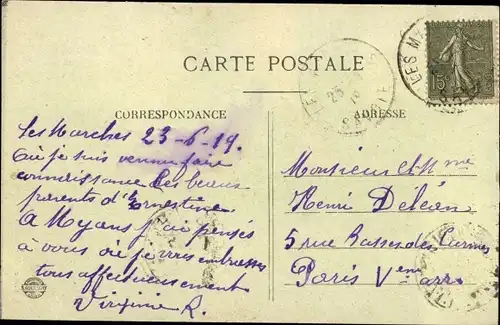 CARTE POSTALE
CORRESPONDANCE
Les Marches 23-6-19.
Où je suis venue faire
connaissance des beaux
parents d'Ernestine
A Myans j'ai pensés
à vous où je vous embrasses
tous affectueusement
Virginie R.
LES MA
15c
SAVOIE
ADRESSE
Monsieur et Mme
Henri Déléan
5 rue Basse des Carmes
Paris Vème arr.